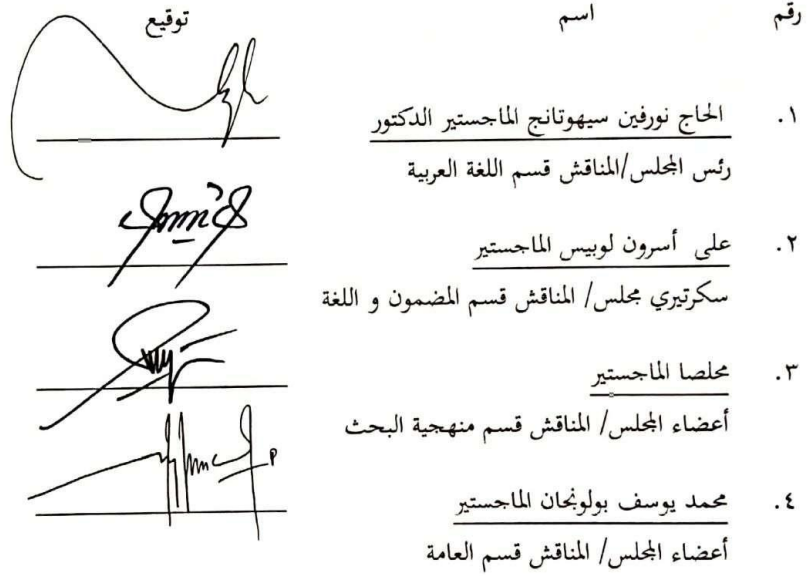 رقم اسم توقيع
١. الحاج نورفين سيهوتانج الماجستير الدكتور
رئس المجلس/المناقش قسم اللغة العربية
٢. على أسرون لوبيس الماجستير
سكرتيري مجلس/ المناقش قسم المضمون و اللغة
٣. مخلصا الماجستير
أعضاء المجلس/ المناقش قسم منهجية البحث
٤. محمد يوسف بولونجان الماجستير
أعضاء المجلس/ المناقش قسم العامة